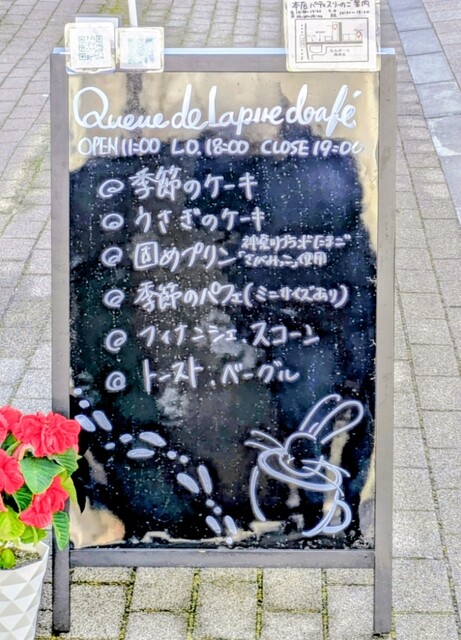 本店パティスリーのご案内
Queue de Lapin e dcafé
OPEN 11:00 L.O. 18:00 CLOSE 19:00
季節のケーキ
うさぎのケーキ
固めプリン 神奈川ブランドたまご
"さがみっこ"使用
季節のパフェ(ミニサイズあり)
フィナンシェ、スコーン
トースト、ベーグル